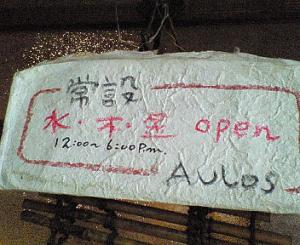 常設
水・木・金 open
12:00~6:00P.m.
AULOS